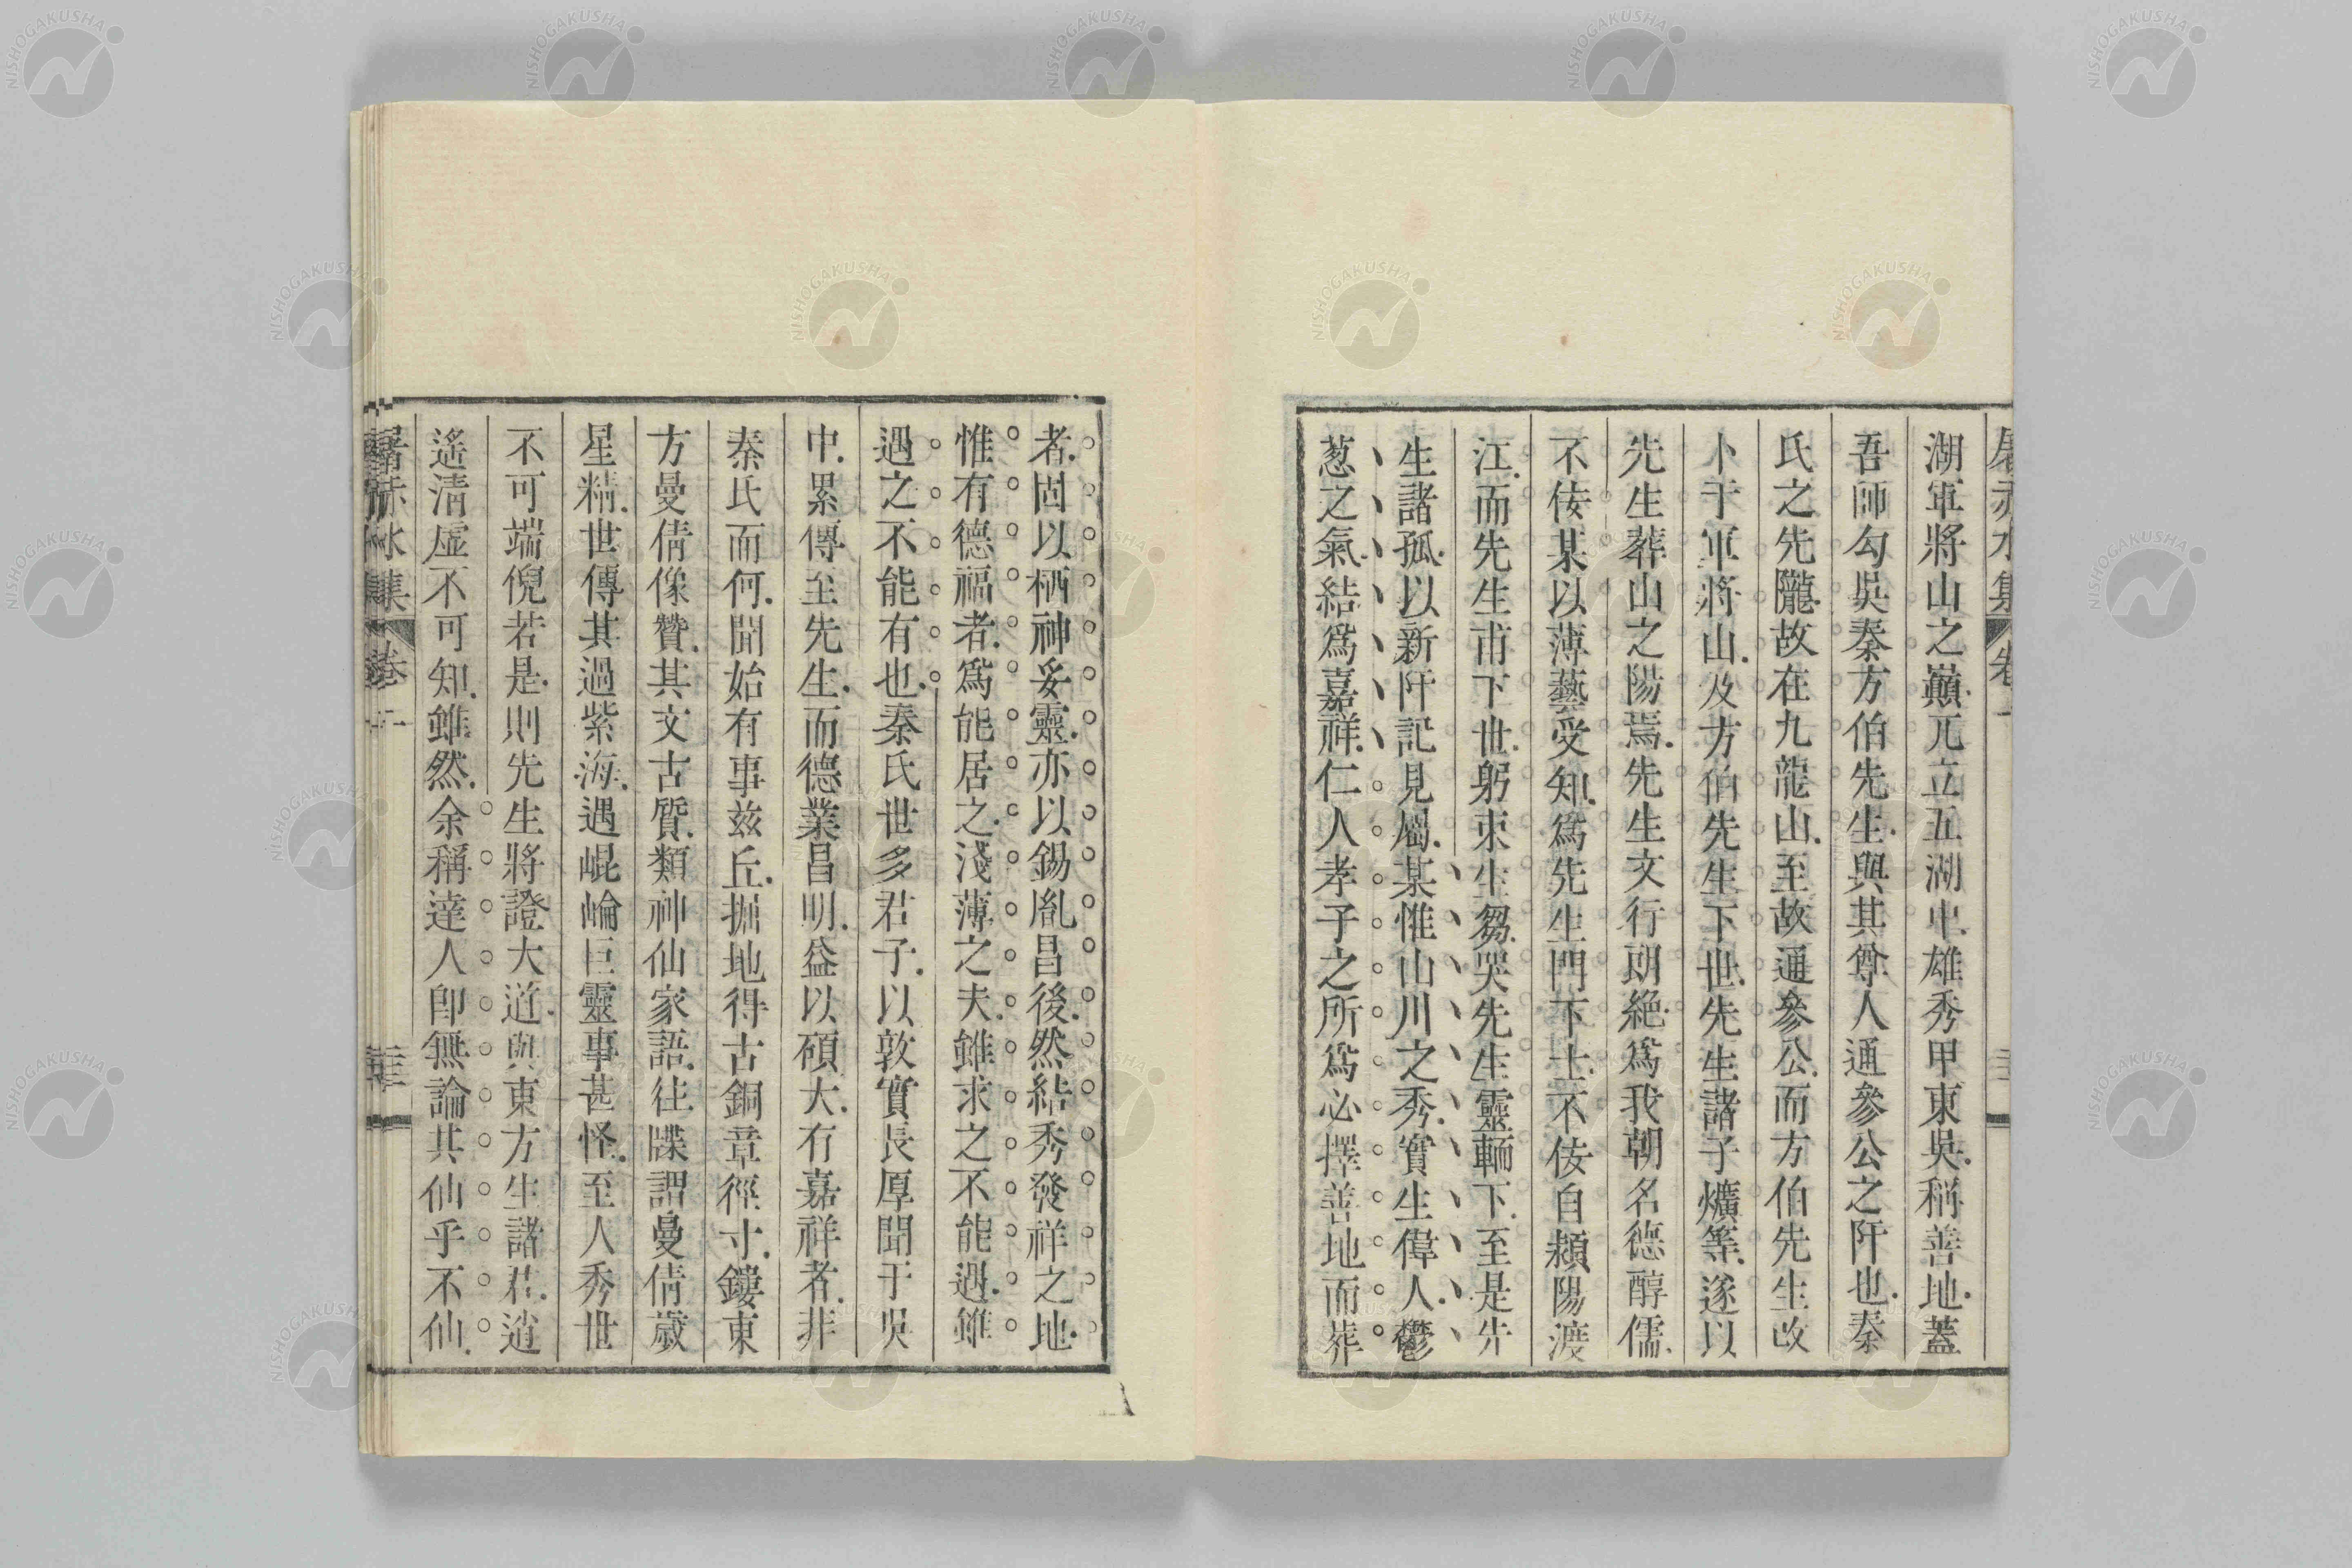 湖軍將山之巔兀立五湖中雄秀甲東吳稱善地蓋
吾師勾吳秦方伯先生與其尊人通參公之阡也秦
氏之先隴故在九龍山至故通參公而方伯先生改
卜于軍將山及方伯先生下世先生諸子爌等遂以
先生葬山之陽焉先生文行朗絶爲我朝名德醇儒
不佞某以薄藝受知爲先生門下士不佞自潁陽渡
江而先生甫下世躬束生芻哭先生靈輀下至是先
生諸孤以新阡記見屬某惟山川之秀實生偉人鬱
葱之氣結爲嘉祥仁人孝子之所爲必擇善地而葬
者固以栖神妥靈亦以錫胤昌後然結秀發祥之地
惟有德福者爲能居之淺薄之夫雖求之不能遇雖
遇之不能有也秦氏世多君子以敦實長厚聞于吳
中累傳至先生而德業昌明益以碩大有嘉祥者非
秦氏而何聞始有事兹丘掘地得古銅章徑寸鏤東
方曼倩像贊其文古質類神仙家語往牒謂曼倩歲
星精世傳其過紫海遇崐崘巨靈事甚怪至人秀世
不可端倪若是則先生將證大道與東方生諸君逍
遙清虛不可知雖然余稱達人卽無論其仙乎不仙
屠赤水集 卷二 三十三